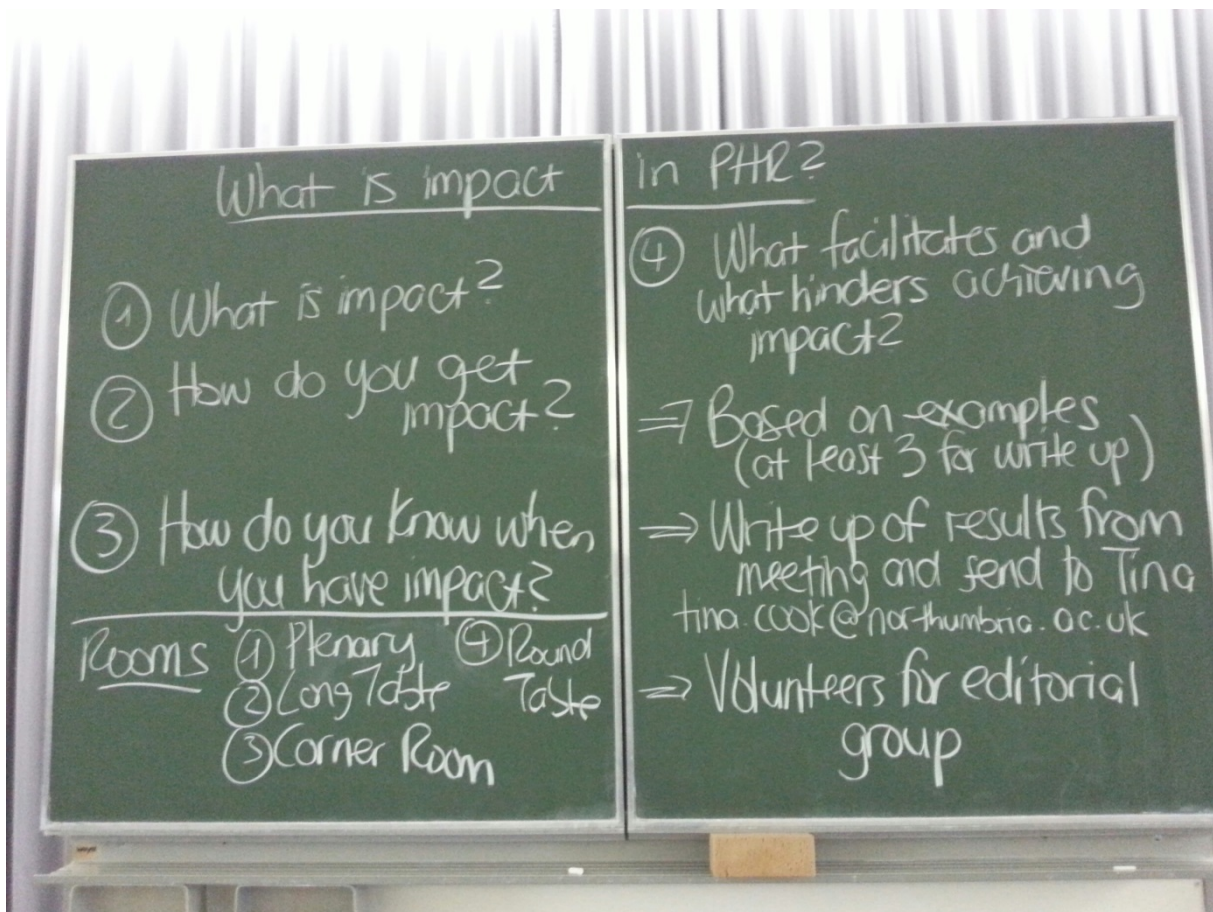 What is impact in PHR?
① What is impact?
② How do you get
impact?
③ How do you know when
you have impact?
Rooms ① Plenary ④ Round
② Long Table Table
③ Corner Room
④ What facilitates and
what hinders achieving
impact?
⇒ Based on examples
(at least 3 for write up)
⇒ Write up of results from
meeting and send to Tina
tina.cook@northumbria.ac.uk
⇒ Volunteers for editorial
group